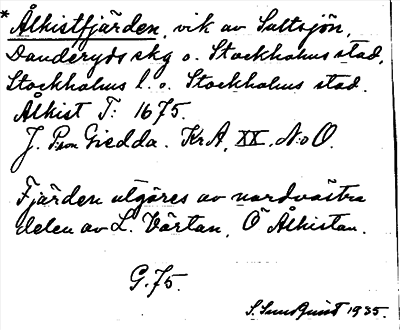 * Ålkistfjärden, vik av Saltsjön,
Danderyds skg o. Stockholms stad,
Stockholms l. o. Stockholms stad.
Ålkist T: 1675.
J. Pson Giedda. KrA, XX, N:o O.
Fjärden utgöres av nordvästra
delen av L. Värtan, Ö Ålkistan.
G. 75.
S. Sundquist 1935.